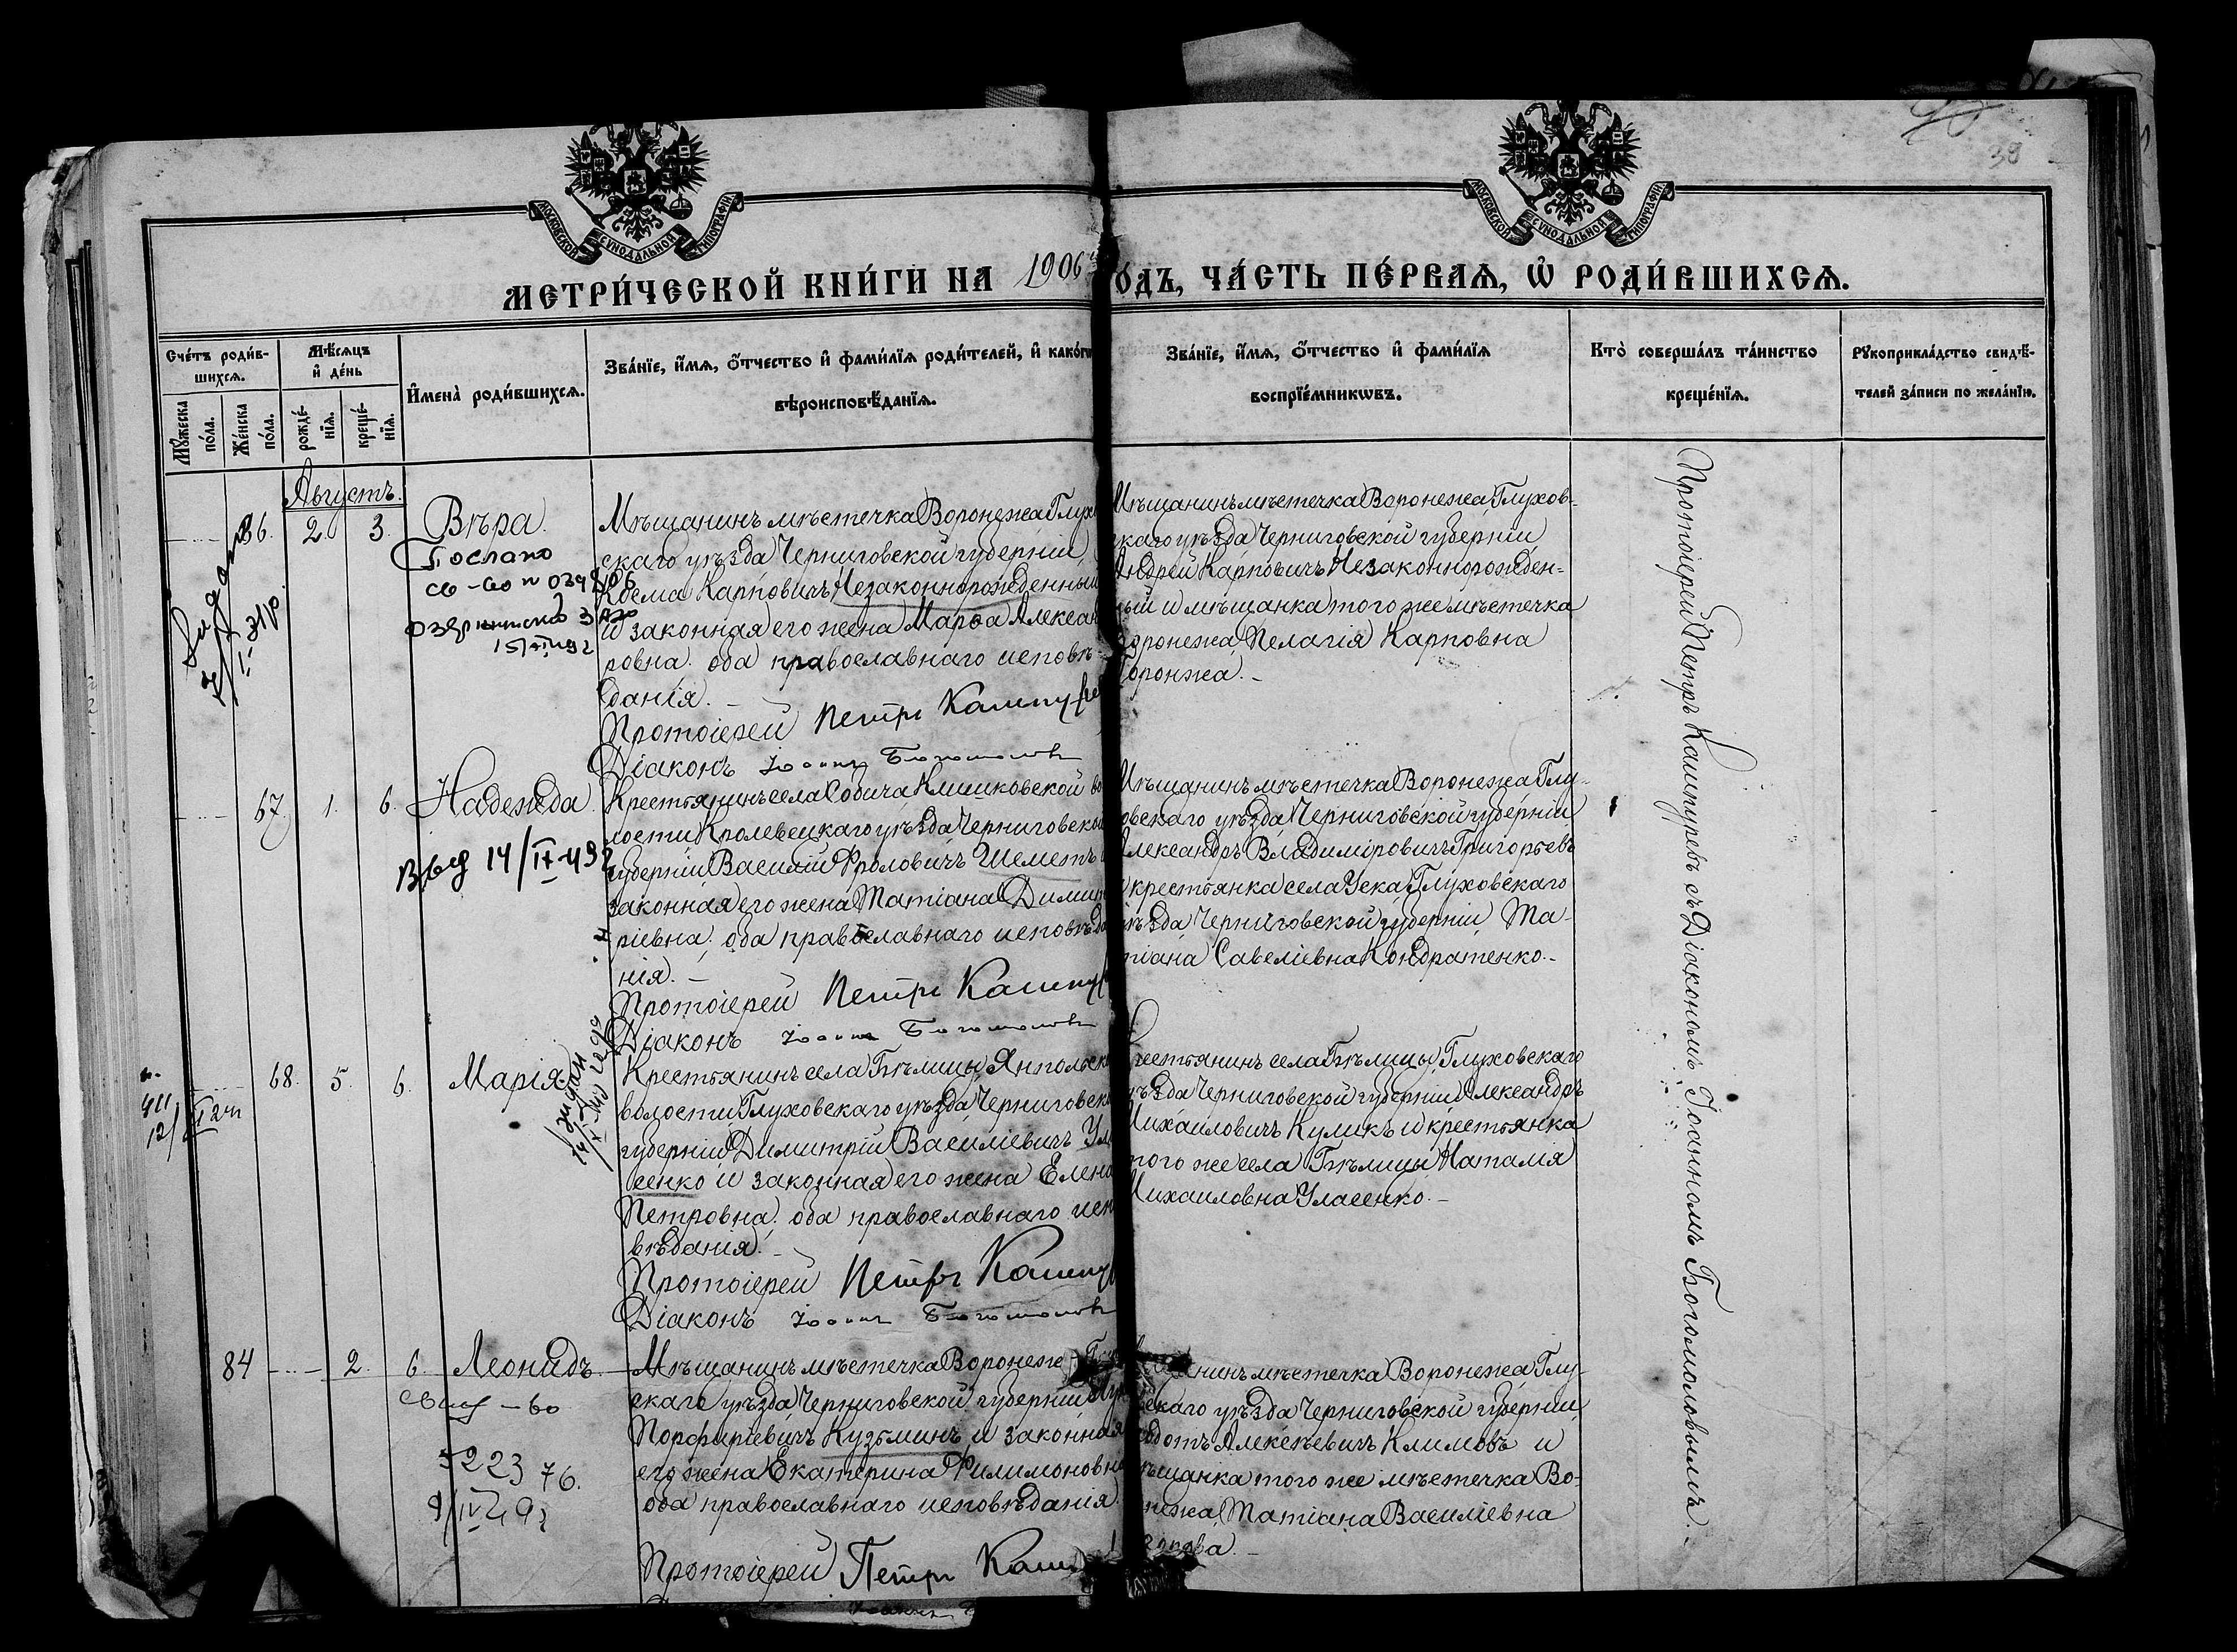 МОСКОВСКОЙ СѴНОДАЛЬНОЙ ТИПОГРАФІИ
МОСКОВСКОЙ СѴНОДАЛЬНОЙ ТИПОГРАФІИ
39
МЕТРИ́ЧЕСКОЙ КНИ́ГИ НА 1906 ОДЪ, ЧА́СТЬ ПЕ́РВАѦ, Ѡ҆ РОДИ́ВШИХСѦ.
Сче́тъ роди́в-
шихсѧ.
Мꙋ́жеска по́ла.
Же́нска по́ла.
Мѣ́сѧцъ
и҆ де́нь
рожде́-
нїѧ.
креще́-
нїѧ.
И҆мена̀ роди́вшихсѧ.
Зва́нїе, и҆́мѧ, ѻ҆́тчество и҆ фами́лїѧ роди́телей, и҆ како́гѡ
вѣроисповѣ́данїѧ.
Зва́нїе, и҆́мѧ, ѻ҆́тчество и҆ фами́лїѧ
воспрїе́мникѡвъ.
Кто̀ соверша́лъ та́инство
креще́нїѧ.
Рꙋкоприкла́дство свидѣ́-
телей за́писи по жела́нїю.
Августъ.
86. 2. 3. Вѣра.
Послано
св-во
Мѣщанинъ мѣстечка Воронежа Глухо
скаго уѣзда Черниговской губерніи
Козма Карповичъ Незаконнорожденный
и законная его жена Марѳа Александ
ровна. оба православнаго исповѣ-
данія. –
Протоіерей Петръ Кашпурев
Діаконъ Іоаннъ Богомоловъ
Мѣщанинъ мѣстечка Воронежа Глухов-
скаго уѣзда Черниговской губерніи
Андрей Карповичъ Незаконнорожден-
ный и мѣщанка того же мѣстечка
Воронежа Пелагія Карповна
Воронжа. –
67. 1. 6. Надежда.
14/IX 49
Крестьянинъ села Собича Клишковской во
лости Кролевецкаго уѣзда Черниговской
губерніи Василій Фроловичъ Шеметъ и
законная его жена Татіана Димит
ріевна. оба православнаго исповѣда
нія. –
Протоіерей Петръ Кашпур
Діаконъ Іоаннъ Богомоловъ
Мѣщанинъ мѣстечка Воронежа Глу-
ховскаго уѣзда Черниговской губерніи
Александръ Владиміровичъ Григорьевъ
и крестьянка села Уека Глуховскаго
уѣзда Черниговской губерніи Та-
тіана Савеліевна Кондратенко. –
68. 5. 6. Марія.
Крестьянинъ села Бѣлицы Янпольск
волости Глуховскаго уѣзда Черниговск
губерніи Димитрій Василіевичъ Ула
сенко и законная его жена Елена
Петровна. оба православнаго испо
вѣданія. –
Протоіерей Петръ Кашпур
Діаконъ Іоаннъ Богомоловъ
Крестьянинъ села Бѣлицы Глуховскаго
уѣзда Черниговской губерніи Александръ
Михайловичъ Куликъ и крестьянка
того же села Бѣлицы Наталія
Михаиловна Уласенко. –
84 2. 6. Леонидъ.
свид-во
Мѣщанинъ мѣстечка Воронеж
скаго уѣзда Черниговской губерніи
Порфиріевичъ Кузьминъ и законная
его жена Екатерина Филимоновна
оба православнаго исповѣданія.
Протоіерей Петръ Каш
анинъ мѣстечка Воронежа Глу-
вскаго уѣзда Черниговской губерніи
Ѳедотъ Алексѣевичъ Климовъ и
мѣщанка того же мѣстечка Во-
нежа Татіана Василіевна
Протоіерей Петръ Кашпуревъ съ Діакономъ Іоанномъ Богомоловымъ.